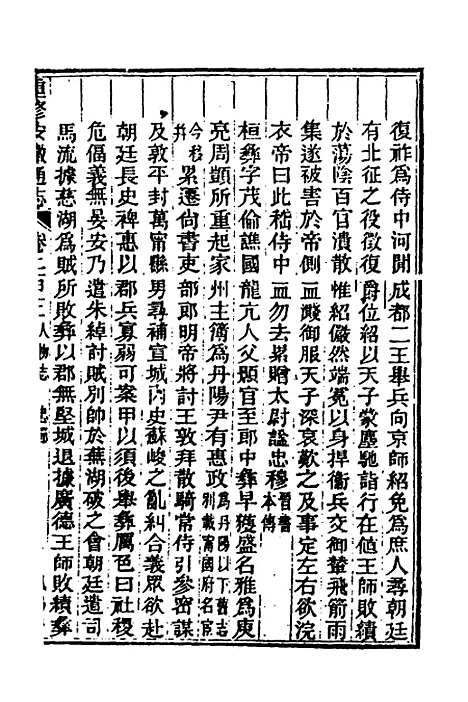 復祚為侍中河閒成都二王舉兵向京師紹免為庶人尋朝廷
有北征之役徵復爵位紹以天子蒙塵馳詣行在値王師敗績
於蕩陰百官潰散惟紹儼然端冕以身捍衞兵交御輦飛箭雨
集遂被害於帝側血濺御服天子深哀歎之及事定左右欲浣
衣帝曰此嵇侍中血勿去累贈太尉諡忠穆晉書本傳
桓彝字茂倫譙國龍亢人父顥官至郎中彝早獲盛名雅為庾
亮周顗所重起家州主簿為丹陽尹有惠政為丹陽以下舊志
別載甯國府名宦
今移
幷
累遷尚書吏部郎明帝將討王敦拜散騎常侍引參密謀
及敦平封萬甯縣男尋補宣城內史蘇峻之亂糾合義眾欲赴
朝廷長史裨惠以郡兵寡弱可案甲以須後舉彝厲色曰社稷
危偪義無晏安乃遣朱綽討賊別帥於蕪湖破之會朝廷遣司
馬流據慈湖為賊所敗彝以郡無堅城退據廣德王師敗績彝
重修安徽通志 卷二百 人物志